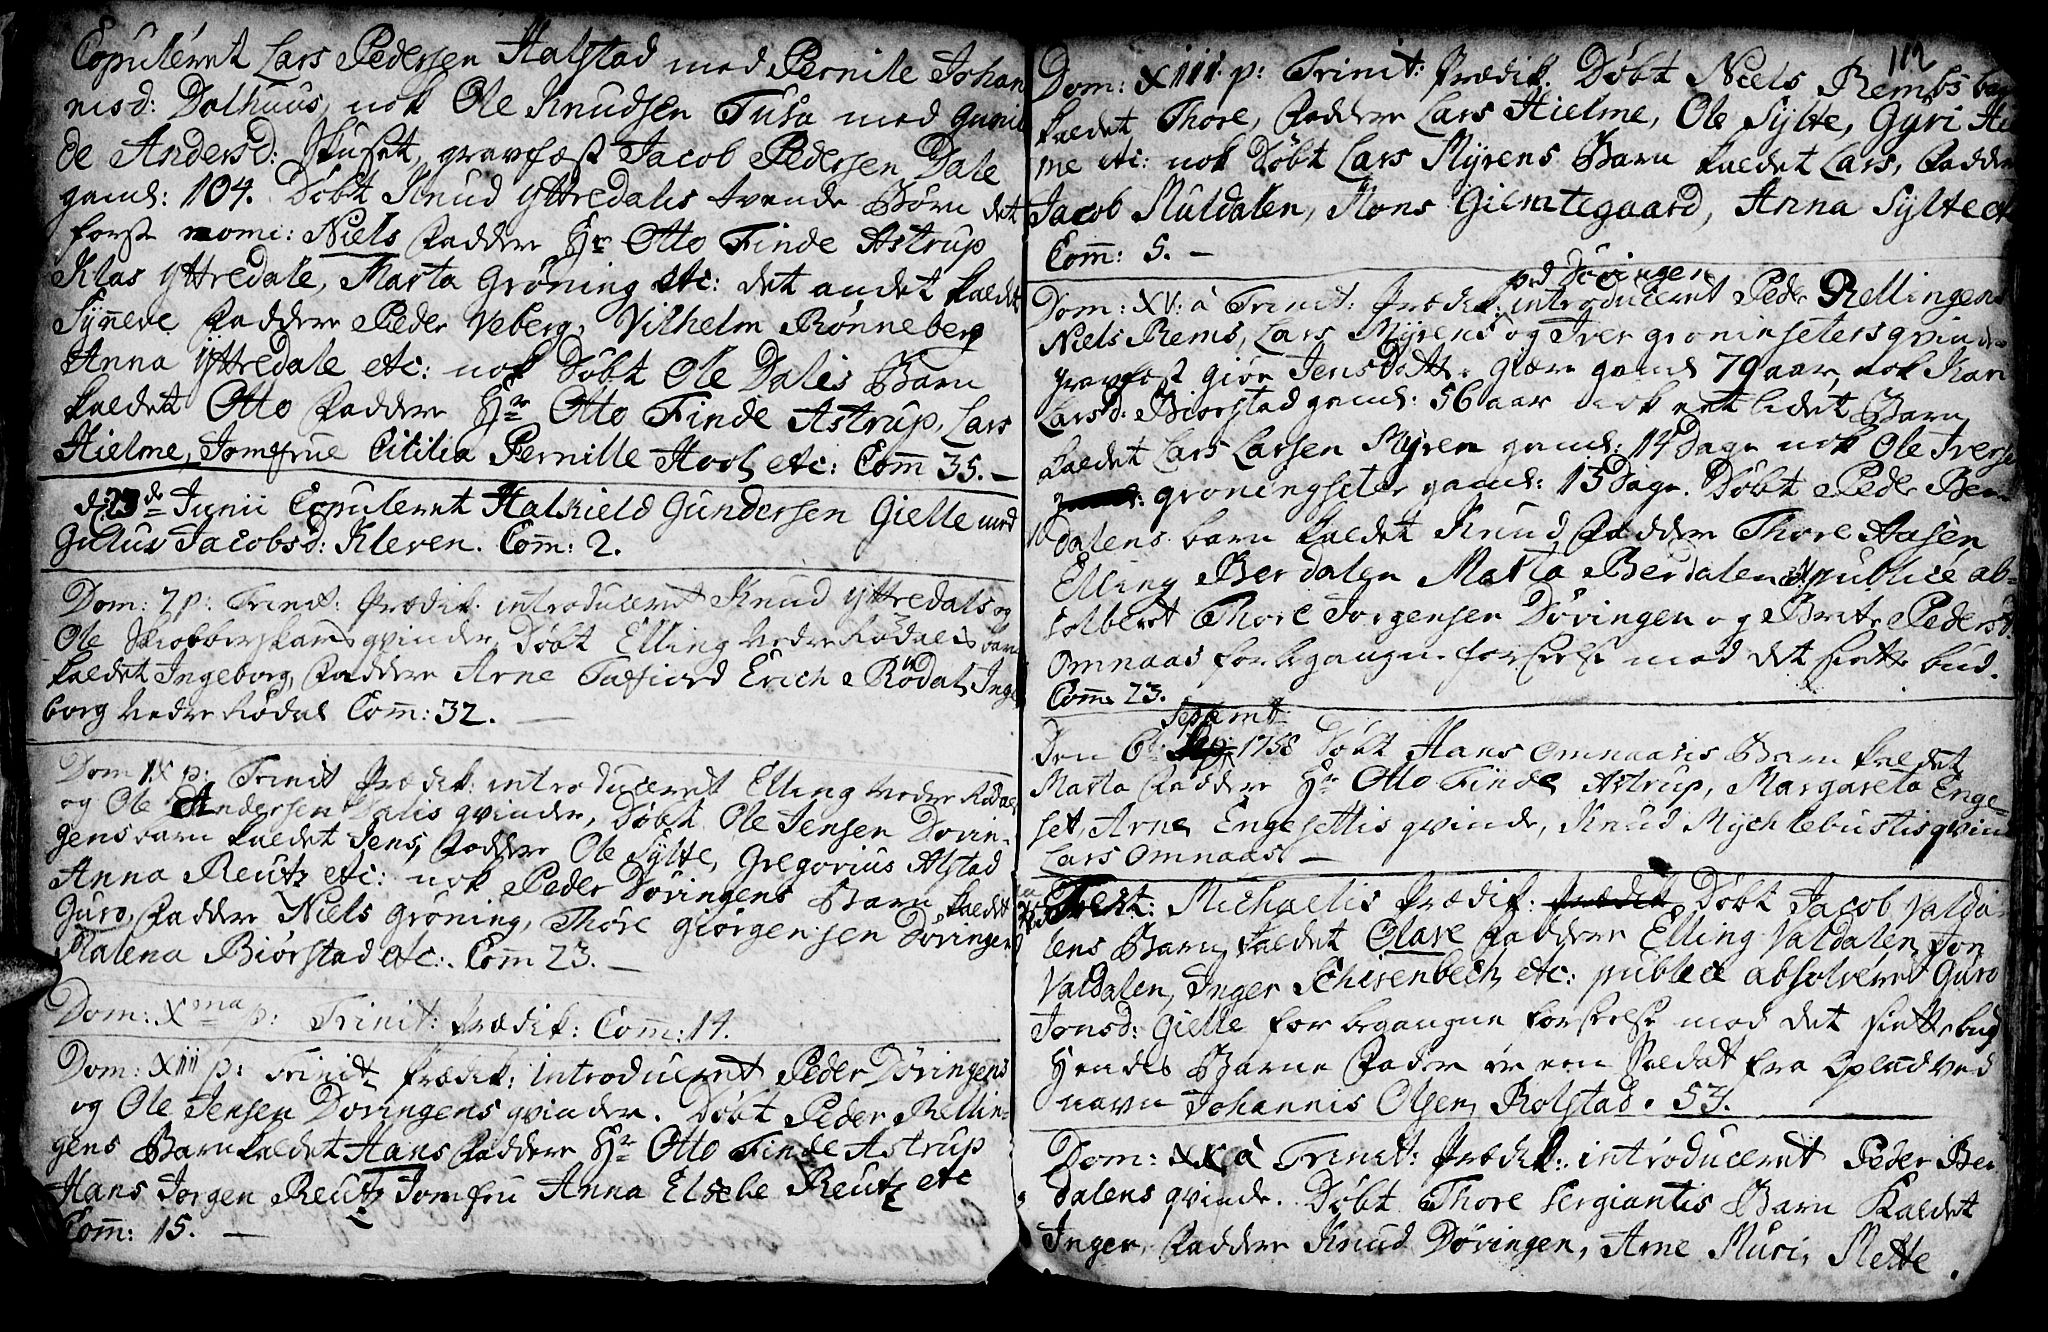 Copuleret Lars Pedersen Halstad med Pernile Johan
nisd: Dalhuus, nok Ole Knudsen Tusa med Gunil
de Andersd: Skuset, gravfæst Jacob Pedersen Dale
gaml: 104. Døbt Knud Yttredalis tvende Børn det
første nomi: Niels Faddere Hr Otto Finde Astrup
Klas Yttredale, Marta Grøning etc: det andet kaldet
Synneve Faddere Peder Veberg, Vilhelm Rønneberg
Anna Yttredale etc: nok Døbt Ole Dalis Barn
kaldet Otto Faddere Hr Otto Finde Astrup, Lars
Hielme, Jomfrue Citilia Pernille Hool etc: Com 35. —
d: 23de Junii Copuleret Halkield Gundersen Gielle med
Gulux Jacobsd: Kleven. Com: 2.
Dom: 7 p: Trinit: Prædik: introduceret Knud Yttredals og
Ole qvinder, Døbt Elling Nedre Rødalis barn
kaldet Ingeborg, Faddere Arne Tafiord Erich Rødal, Inge
borg Nedre Rødal Com: 32. —
Dom IX p: Trinit Prædik: introduceret Elling Nedre Rødal
og Ole Andersen Dalis qvinder, Døbt Ole Jensen Dövin-
gens barn kaldet Jens, Faddere Ole Sylte, Gregorius Alstad
Anna Reutz etc: nok Peder Dövingens Barn kaldet
Guro, Faddere Niels Grøning, Thore Giørgensen Dövingen
Malena Biørstad etc: Com 23. —
Dom: Xma p: Trinit: Prædik: Com: 14.
Dom: XIII p: Trinit: Prædik: introduceret Peder Dövingens
og Ole Jensen Dövingens qvinder. Døbt Peder Rellin-
gens Barn kaldet Hans Faddere Hr Otto Finde Astrup
Hans Jørgen Reutz Jomfru Anna Elsebe Reutz etc
Com: 15. —
112
Dom: XIIII. p: Trinit: Prædik. Døbt Niels Rembs barn
kaldet Thore, Faddere Lars Hielme, Ole Sylte, Gyri Hiel
me etc: nok Døbt Lars Myrens Barn kaldet Lars, Faddere
Jacob Muldalen, Mons Giemtegaard, Anna Sylte etc
Com: 5. —
ved Dövingen
Dom: XV: à Trinit: Prædik: introduceret Peder Rellingens
Niels Rems, Lars Myrens og Iver Groningseters qvinder
gravfæst Giøe Jensdotter gaml 79 aar, nok Kari
Larsd: Biørstad gaml: 56 aar nok eet lidet Barn
kaldet Lars Larsen Myren gaml: 14 Dage nok Ole Iversen
Groningseter gaml: 13 Dage. Døbt Peder Ber
dalens barn kaldet Knud, Faddere Thore Aasen
Elling Berdalen Marta Berdalen publice ab-
solveret Thore Jørgensen Dövingen og Brite Pedersd:
Omnaas for begangne forseelse mod det siette bud.
Com: 23.
Septemt
Den 6t 1758 Døbt Hans Omnaasis Barn kaldet
Marta Faddere Hr Otto Finde Astrup, Margareta Enge-
set, Arne Engesettis qvinde, Knud Mychlebustis qvinde
Lars Omnaas. —
Fest: Michaelis Prædik: Prædik Døbt Jacob Valda
lens Barn kaldet Olave Faddere Elling Valdalen, Jon
Valdalen, Inger Schisenbech, etc: publice absolveret Guro
Jonsd: Gielle for begangne forseelse mod det siette bud
Hendes Barne Fader er een Soldat fra Opland ved
navn Johannis Olsen Rolstad. 53.
Dom: XX à Trinit: Prædik: introduceret Peder Ber
dalens qvinde. Døbt Thore Sergiantis Barn kaldet
Inger, Faddere Knud Dövingen, Arne Muri, Mette